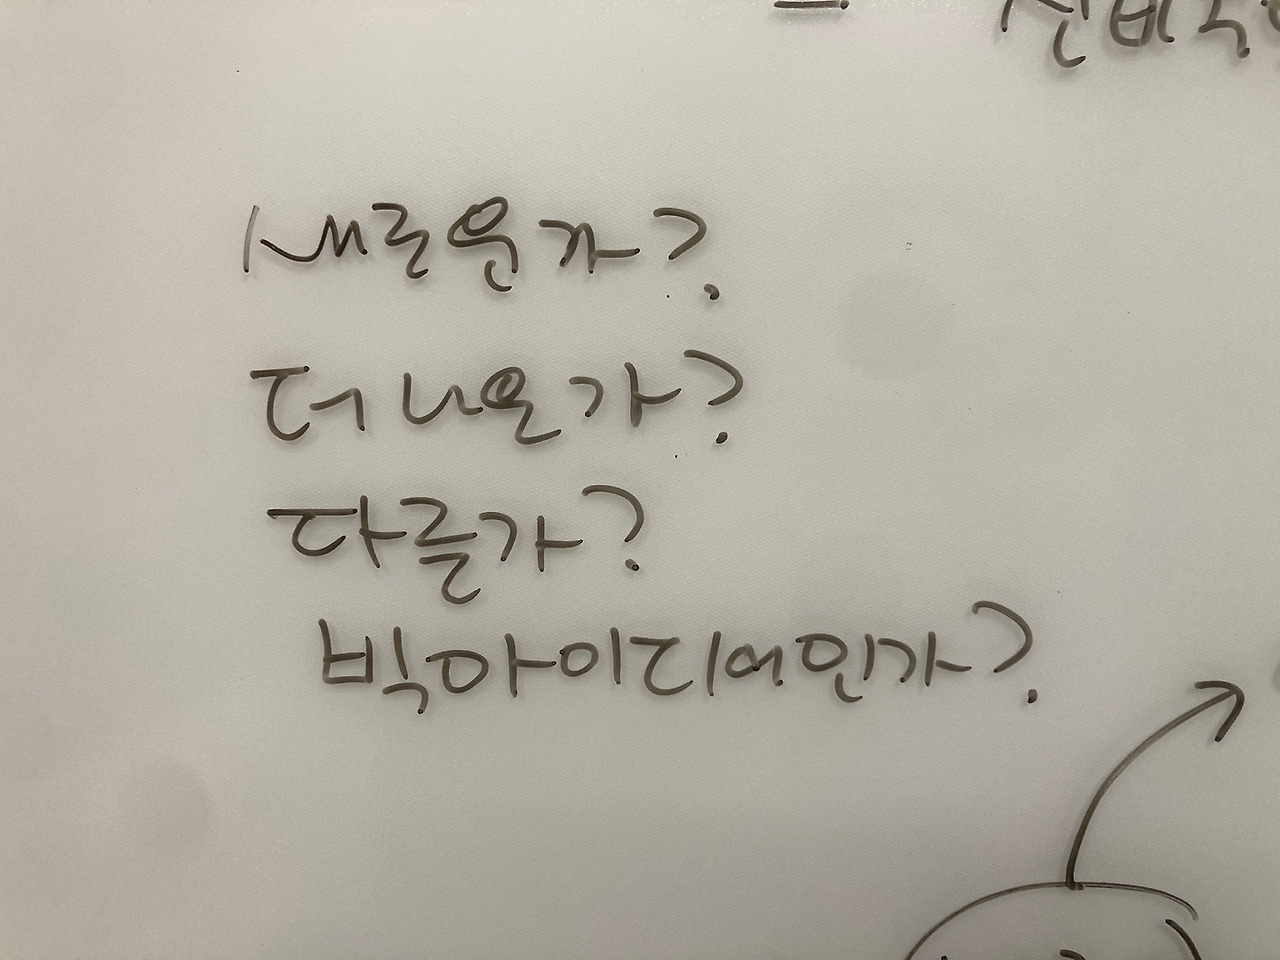 새로운가?
더 나은가?
다른가?
빅아이디어인가?